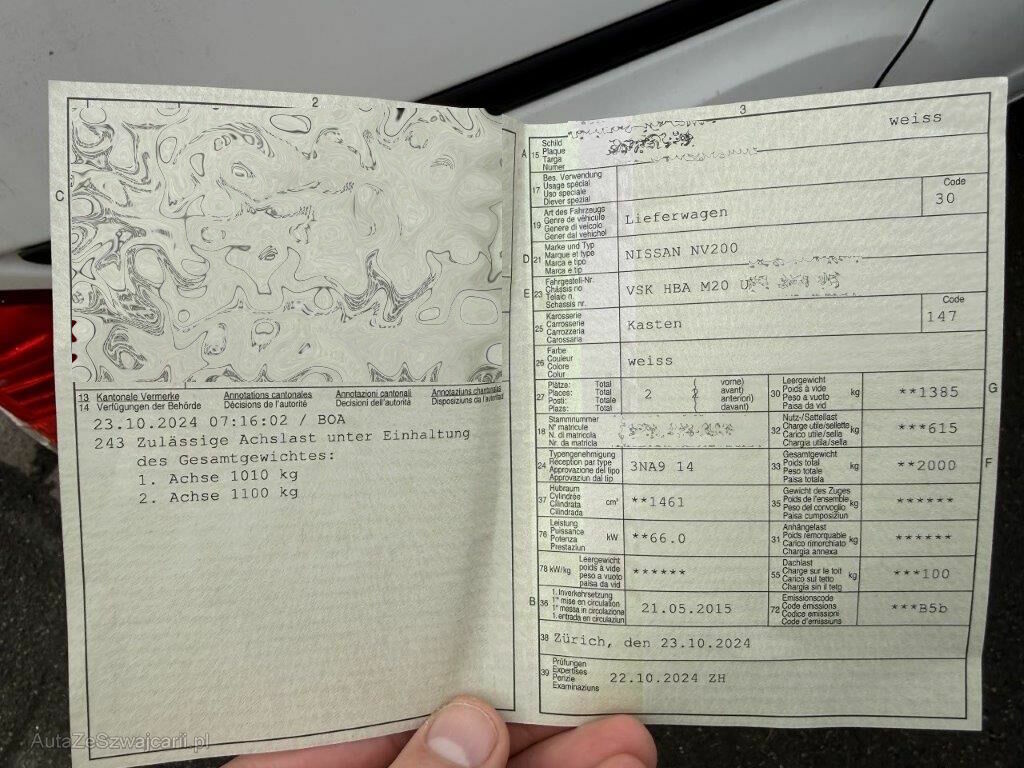 2
C
13 Kantonale Vermerke Annotations cantonales Annotazioni cantonali Annotaziuns chantunalas
14 Verfügungen der Behörde Décisions de l'autorité Decisioni dell'autorità Disposiziuns da l'autoritad
23.10.2024 07:16:02 / BOA
243 Zulässige Achslast unter Einhaltung
des Gesamtgewichtes:
1. Achse 1010 kg
2. Achse 1100 kg
3
weiss
A 15 Schild
Plaque
Targa
Numer
17 Bes. Verwendung
Usage spécial
Uso speciale
Diever spezial
Code
30
19 Art des Fahrzeugs
Genre de véhicule
Genere di veicolo
Gener dal vehichel
Lieferwagen
D 21 Marke und Typ
Marque et type
Marca e tipo
Marca e tip
NISSAN NV200
E 23 Fahrgestell-Nr.
Châssis no
Telaio n.
Schassis nr.
VSK HBA M20 U
25 Karosserie
Carrosserie
Carrozzeria
Carossaria
Kasten
Code
147
26 Farbe
Couleur
Colore
Colur
weiss
27 Plätze: Total
Places: Total
Posti: Totale
Plazs: Total
2 ( vorne)
2 avant)
anteriori)
( davant)
30 Leergewicht
Poids à vide
Peso a vuoto
Paisa da vid
kg
**1385
G
18 Stammnummer
N° matricule
N. di matricola
Nr. da matricla
32 Nutz-/Sattellast
Charge utile/sellette
Carico utile/sella
Chargia utila/sella
kg
***615
24 Typengenehmigung
Réception par type
Approvazione del tipo
Approvaziun dal tip
3NA9 14
33 Gesamtgewicht
Poids total
Peso totale
Paisa totala
kg
**2000
F
37 Hubraum
Cylindrée
Cilindrata
Cilindrada
cm³
**1461
35 Gewicht des Zuges
Poids de l'ensemble
Peso del convoglio
Paisa cumposiziun
kg
******
76 Leistung
Puissance
Potenza
Prestaziun
kW
**66.0
31 Anhängelast
Poids remorquable
Carico rimorchiato
Chargia annexa
kg
******
78 kW/kg Leergewicht
poids à vide
peso a vuoto
paisa da vid
******
55 Dachlast
Charge sur le toit
Carico sul tetto
Chargia sin il tetg
kg
***100
B 36 1. Inverkehrsetzung
1re mise en circulation
1a messa in circolazione
1. entrada en circulaziun
21.05.2015
72 Emissionscode
Code émissions
Codice emissioni
Code d'emissiuns
***B5b
38 Zürich, den 23.10.2024
39 Prüfungen
Expertises
Perizie
Examinaziuns
22.10.2024 ZH
AutaZeSzwajcarii.pl